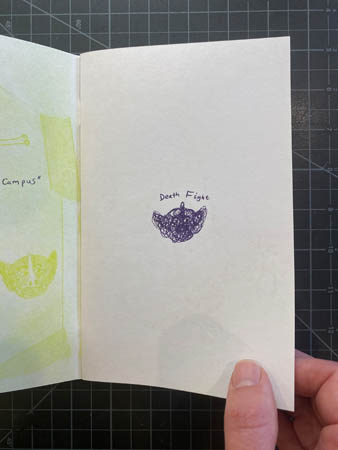 Campus"
Death Fight